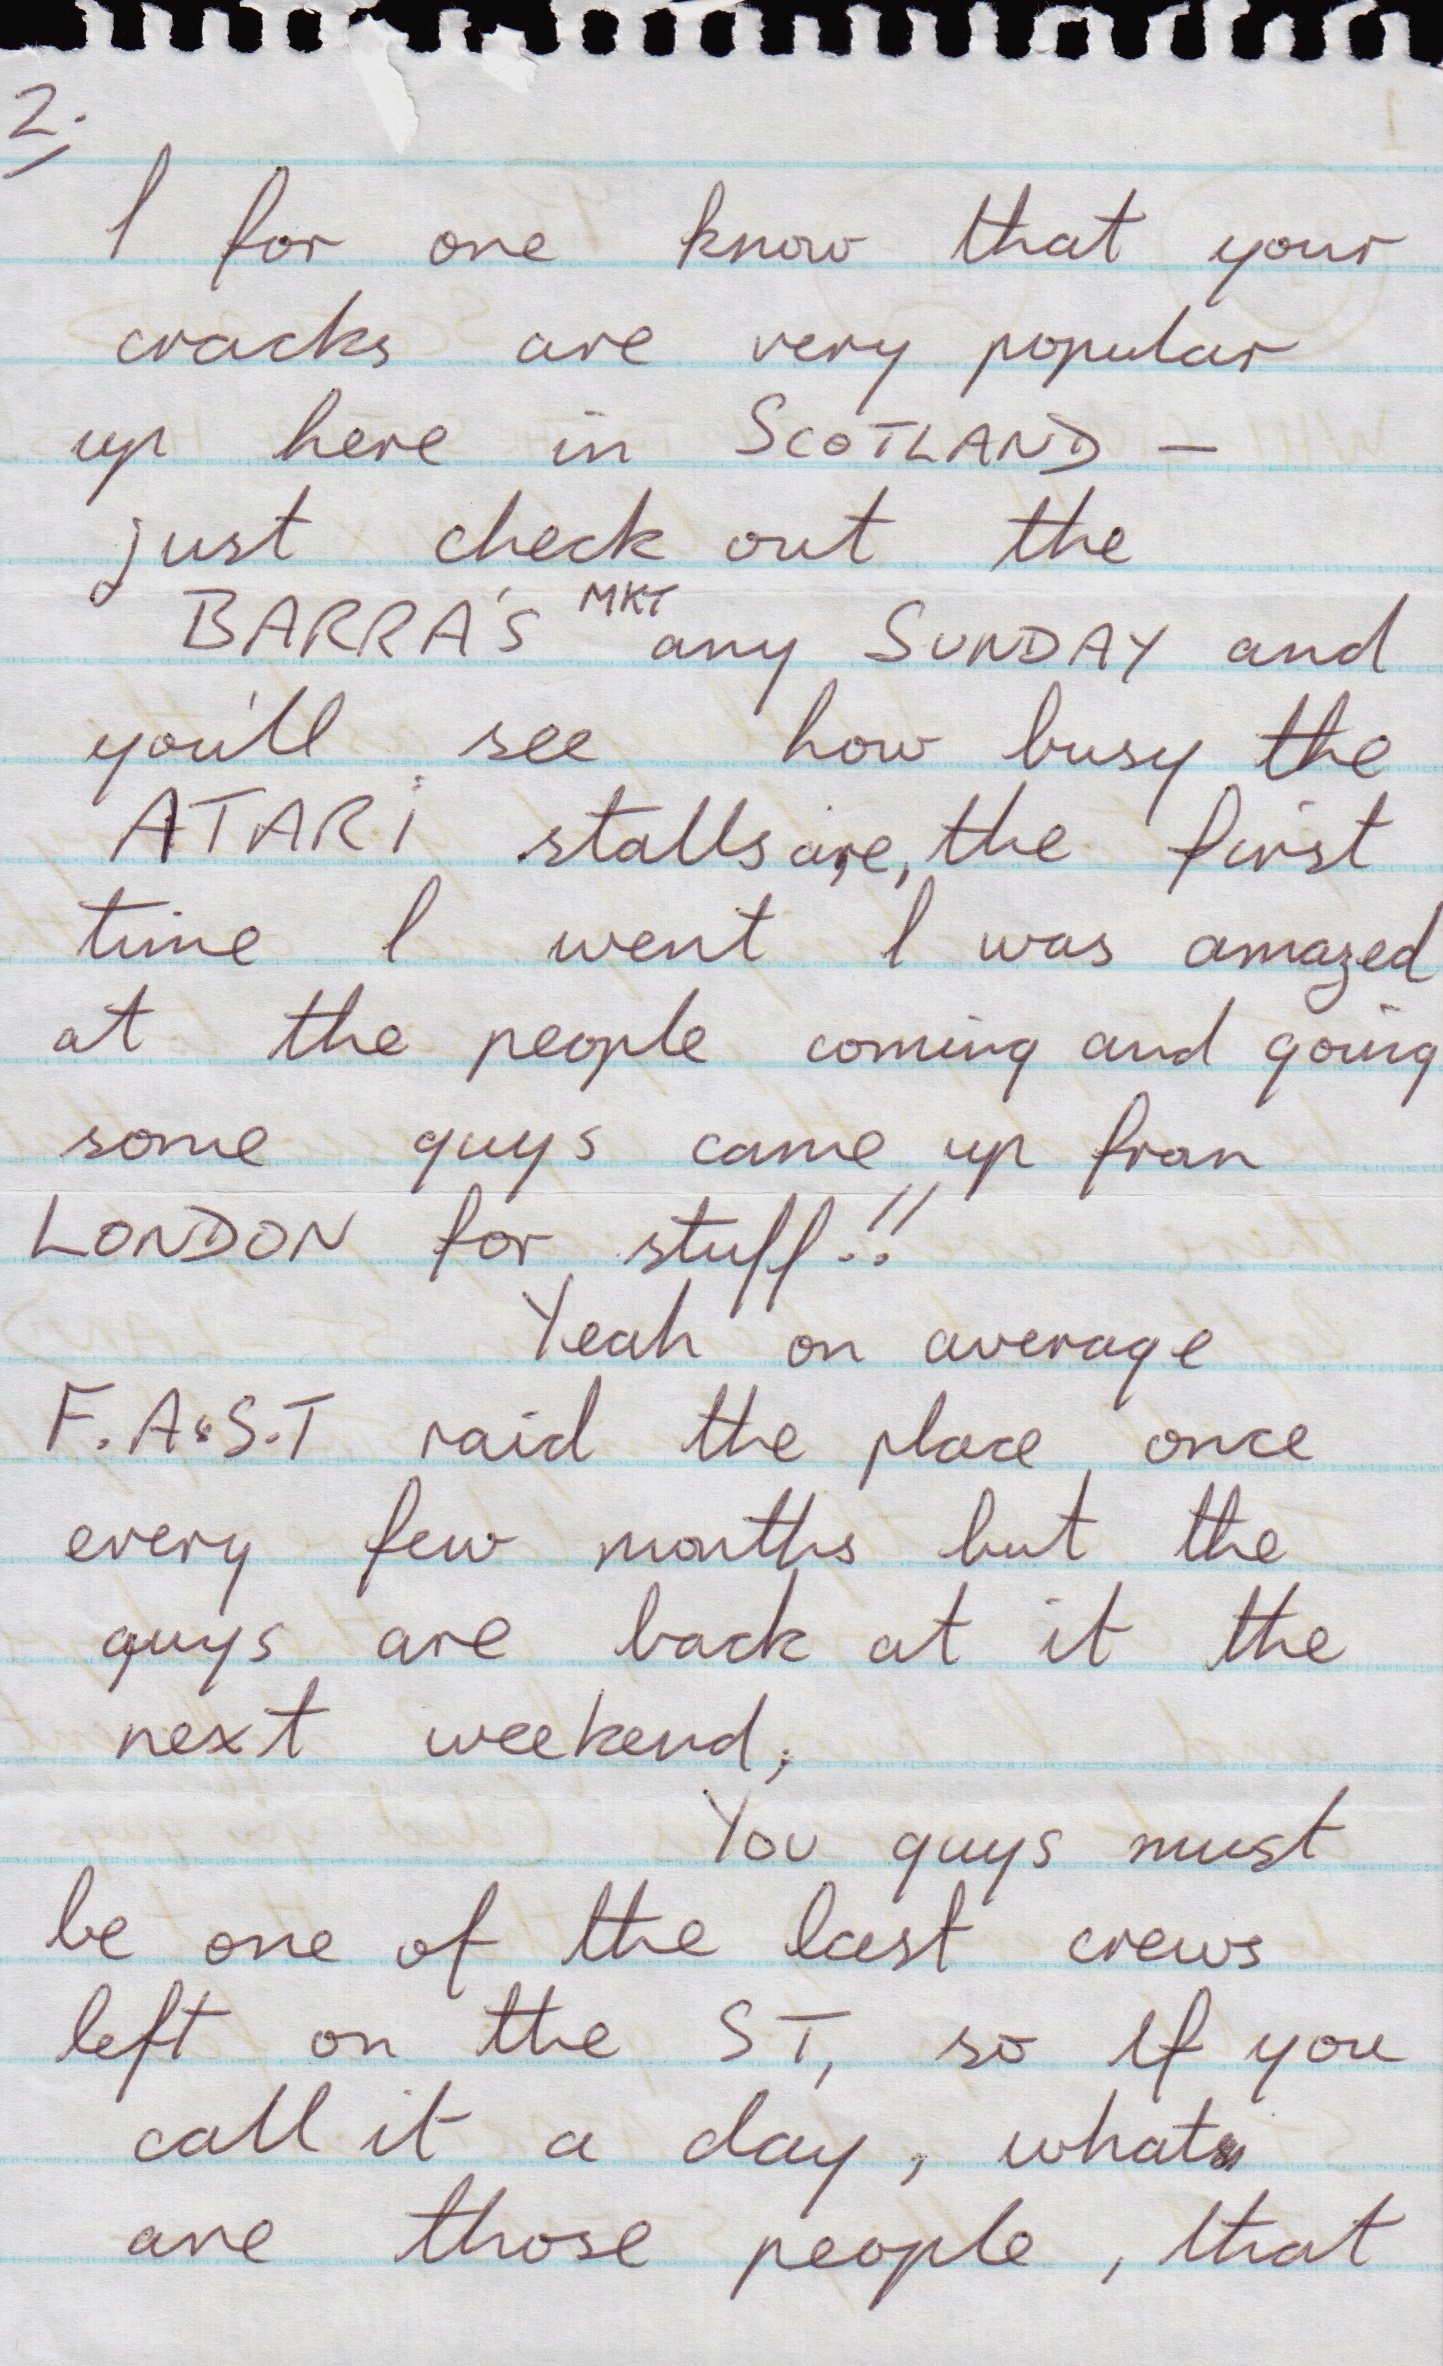 2.
I for one know that your
cracks are very popular
up here in SCOTLAND -
just check out the
BARRA'S MKT any SUNDAY and
you'll see how busy the
ATARI stalls are, the first
time I went I was amazed
at the people coming and going
some guys came up from
LONDON for stuff!!
Yeah on average
F.A.S.T raid the place once
every few months but the
guys are back at it the
next weekend,
You guys must
be one of the last crews
left on the ST, so if you
call it a day, what
are those people, that